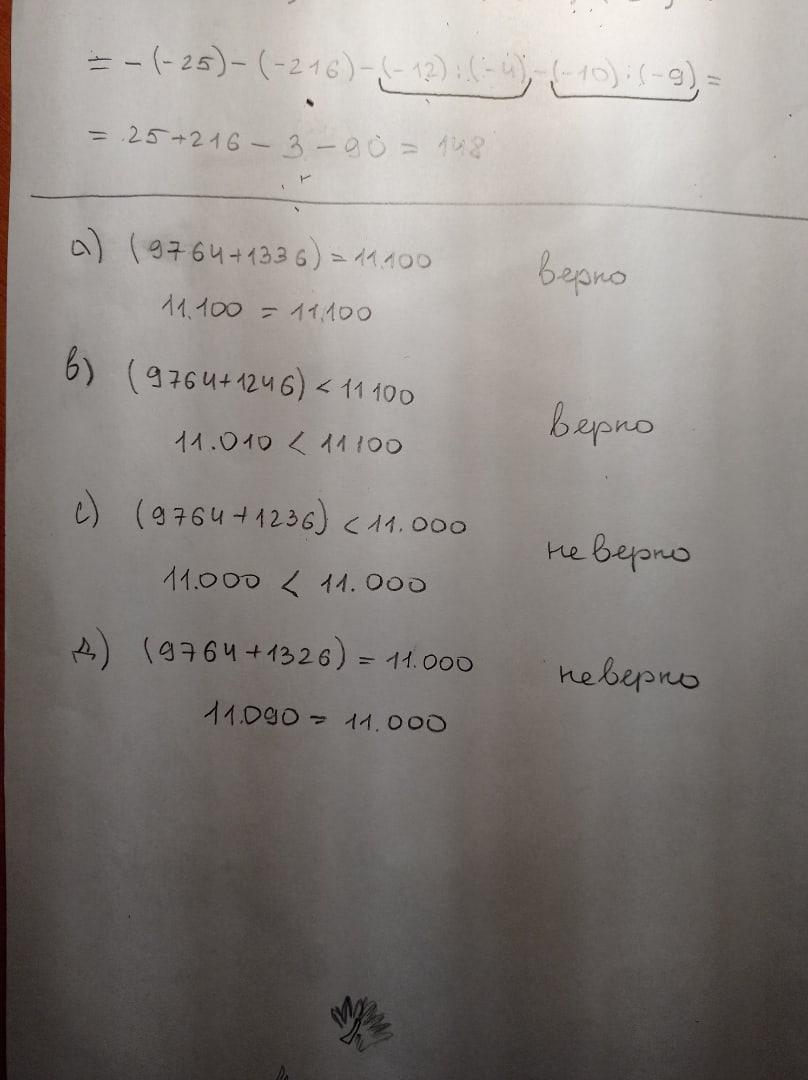 = -(-25)-(-216)-(-12):(-4)-(-10):(-9)=
= 25+216-3-90=148
а) (9764+1336)=11.100 верно
11.100 = 11.100
в) (9764+1246)<11100 верно
11.010 < 11100
с) (9764+1236)<11.000 неверно
11.000 < 11.000
д) (9764+1326)=11.000 неверно
11.090 = 11.000